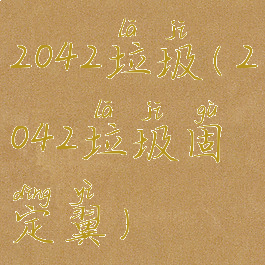 lā jī
2042垃圾(2
lā jī gù
042垃圾固
dìng yì
定翼)